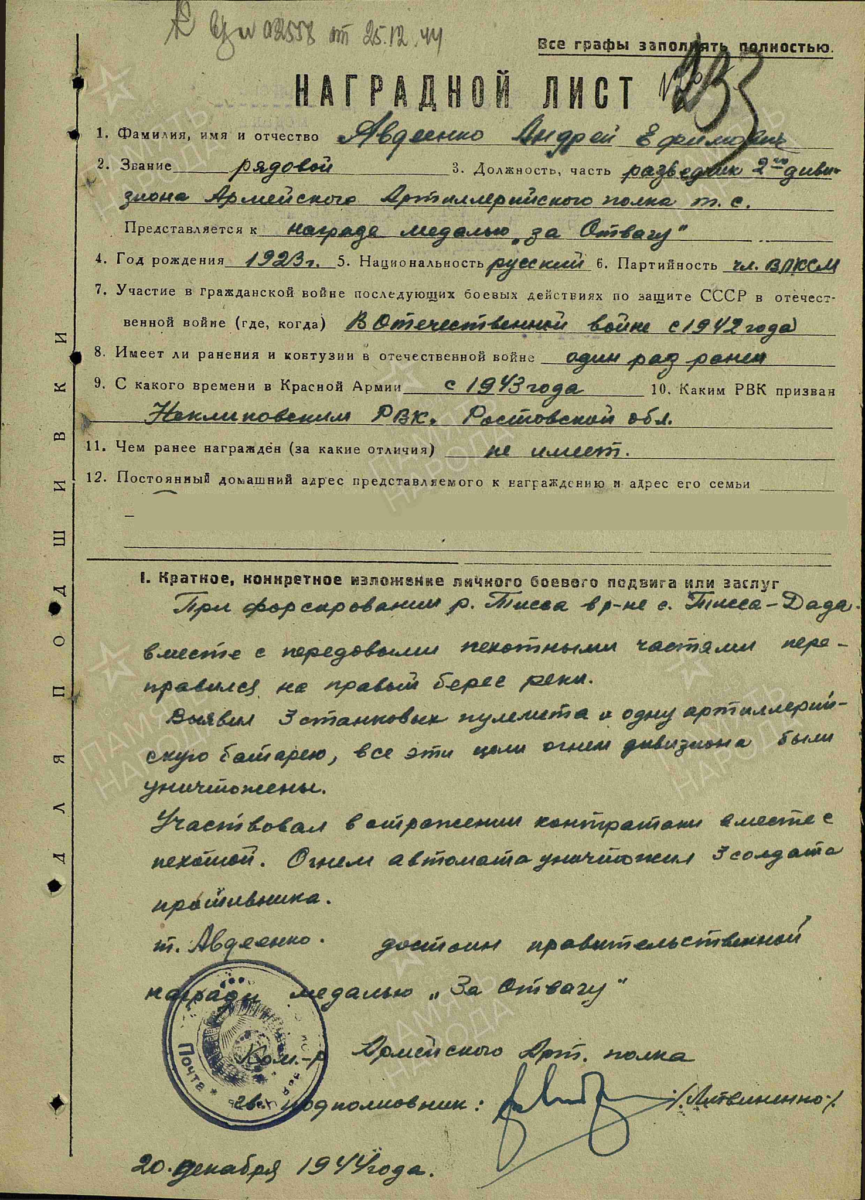 от 25.12.44
Все графы заполнять полностью.
НАГРАДНОЙ ЛИСТ № 233
1. Фамилия, имя и отчество Авдеенко Андрей Ефимович
2. Звание рядовой 3. Должность, часть разведчик 2го диви-
зиона Армейского Артиллерийского полка т. с.
Представляется к награде медалью „за Отвагу"
4. Год рождения 1923 г. 5. Национальность русский 6. Партийность чл. ВЛКСМ
7. Участие в гражданской войне последующих боевых действиях по защите СССР в отечест-
венной войне (где, когда) В Отечественной войне с 1942 года
8. Имеет ли ранения и контузии в отечественной войне один раз ранен
9. С какого времени в Красной Армии с 1943 года 10. Каким РВК призван
Неклиновским РВК. Ростовской обл.
11. Чем ранее награждён (за какие отличия) не имеет.
12. Постоянный домашний адрес представляемого к награждению и адрес его семьи
I. Краткое, конкретное изложение личного боевого подвига или заслуг
При форсировании р. Тисса в р-не с. Тисса-Дада.
вместе с передовыми пехотными частями пере-
правился на правый берег реки.
Выявил 3 станковых пулемета и одну артиллерий-
скую батарею, все эти цели огнем дивизиона были
уничтожены.
Участвовал в отражении контратаки вместе с
пехотой. Огнем автомата уничтожил 3 солдата
противника.
т. Авдеенко. достоин правительственной
награды медалью „За Отвагу"
Ком-р Армейского Арт. полка
гв. подполковник: /Литвиненко/.
20. декабря 1944 года.
ДЛЯ ПОДШИВКИ
Почта
ПАМЯТЬ НАРОДА